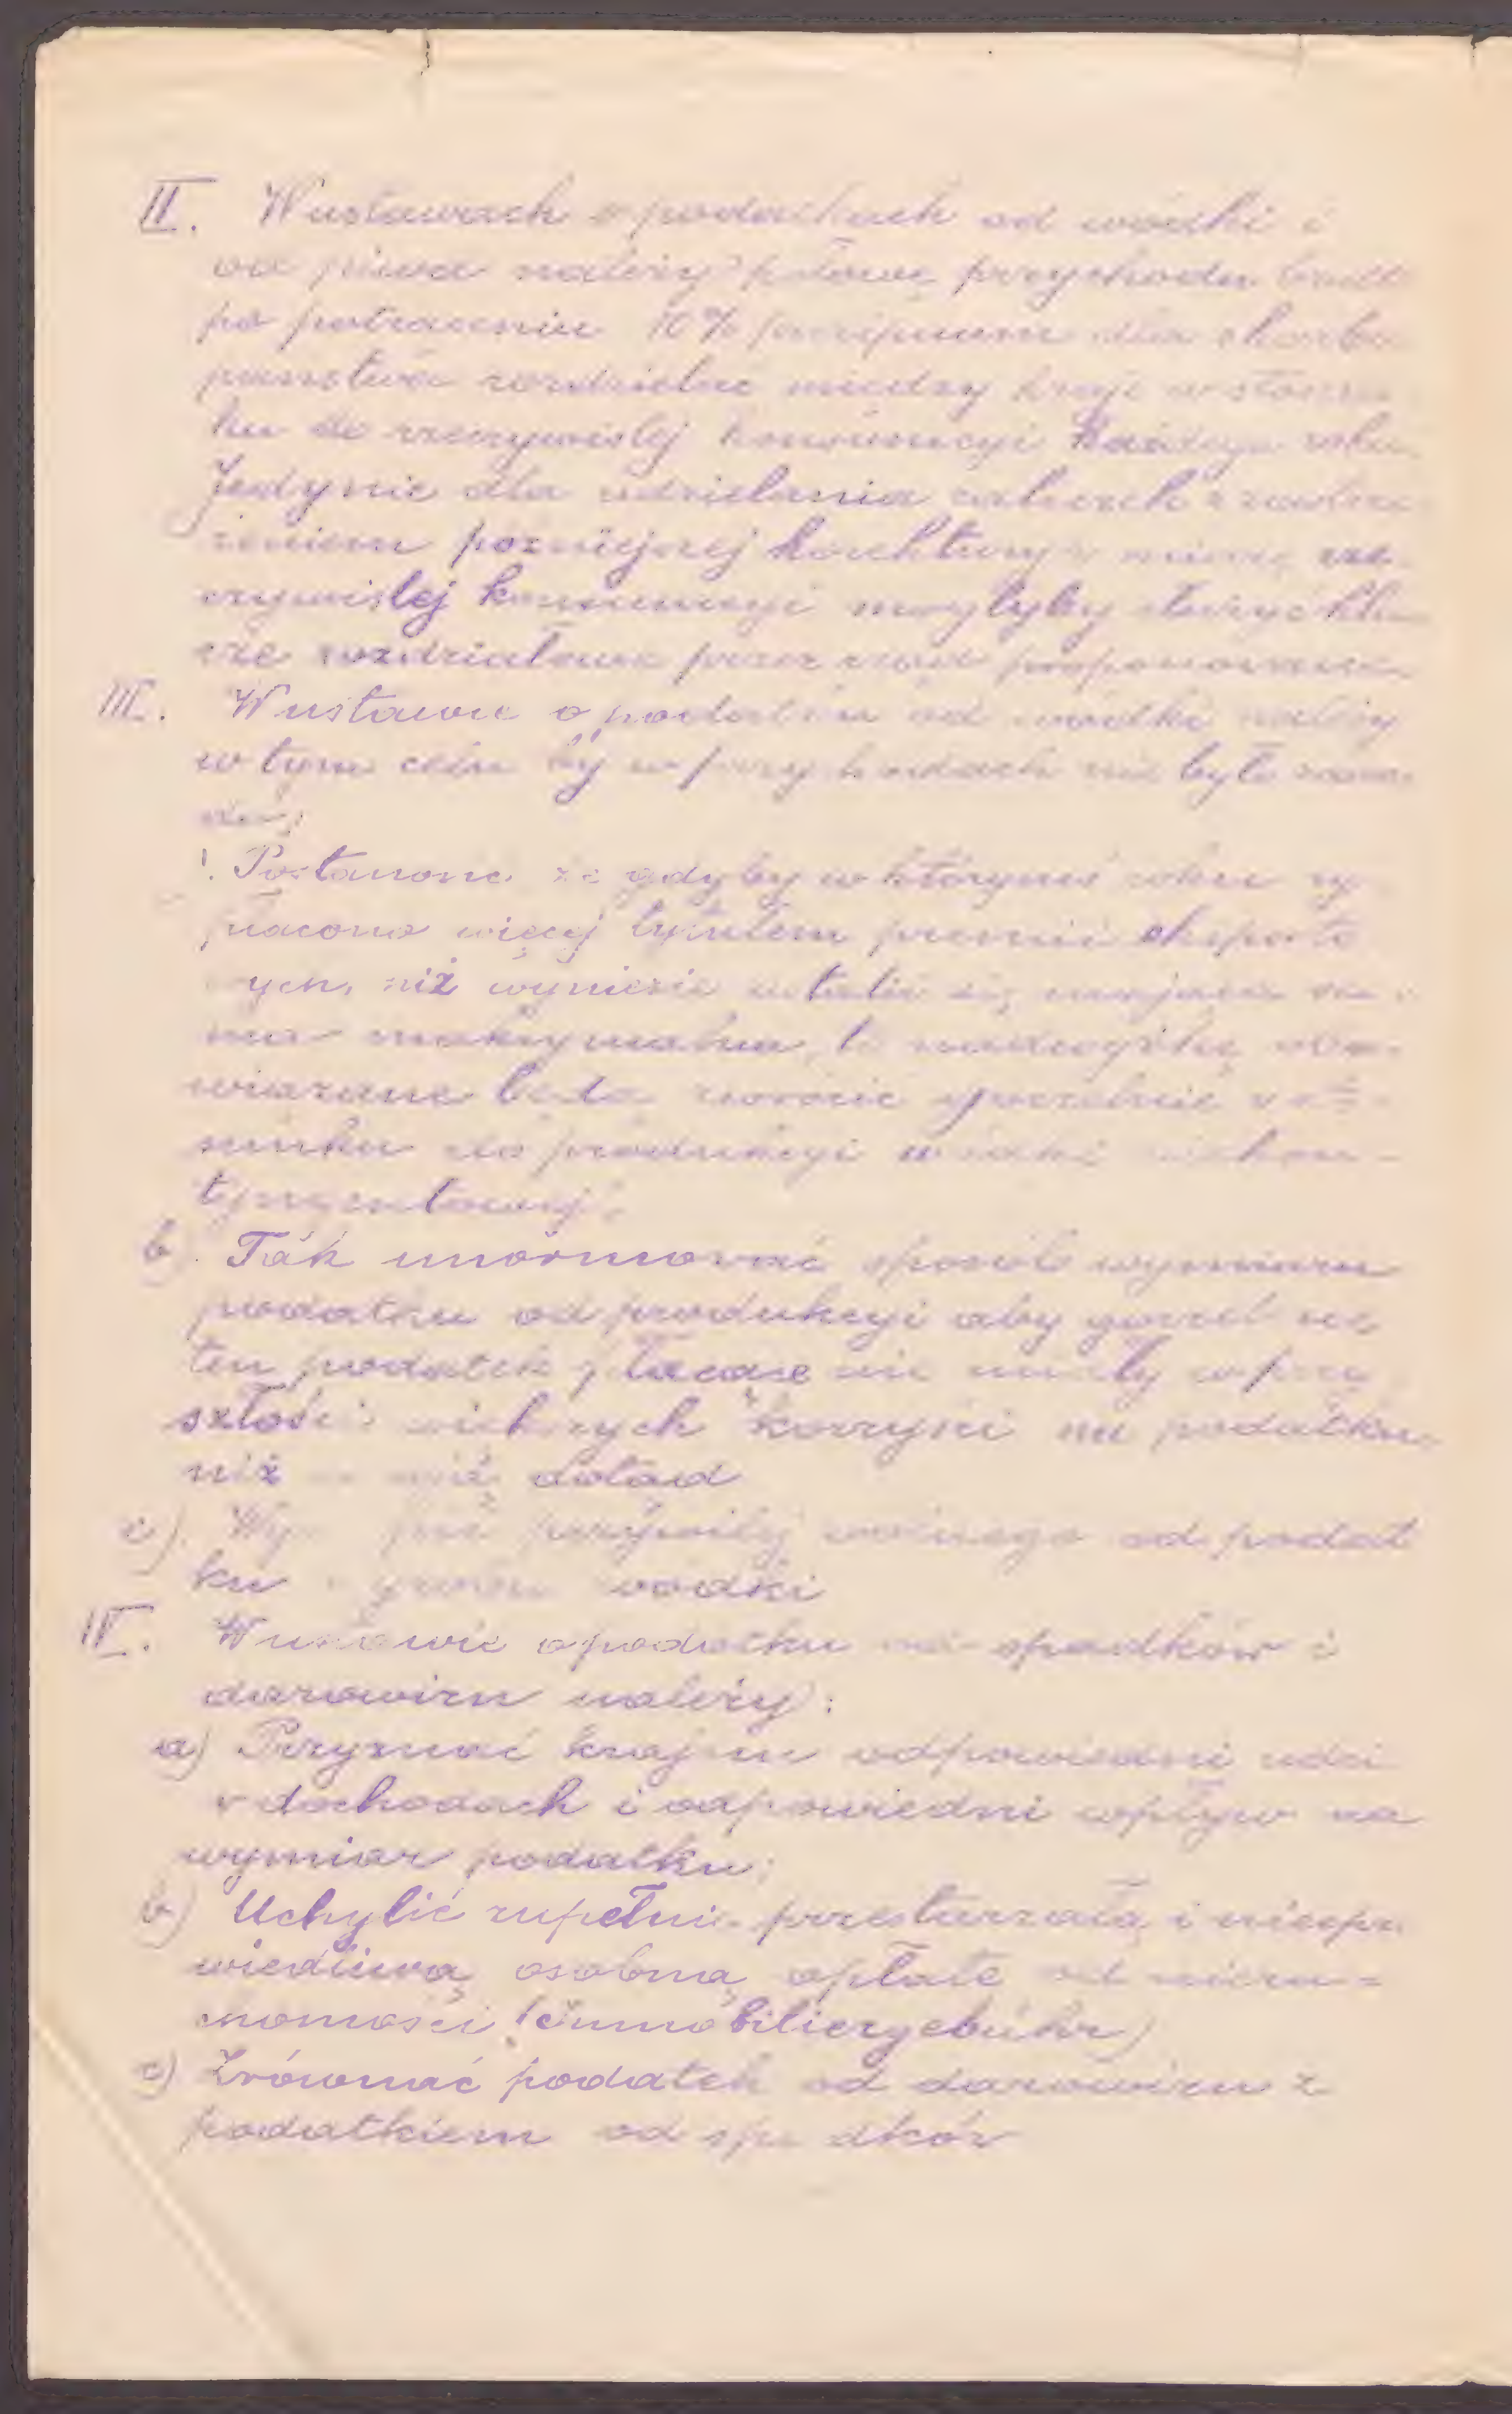 II. W ustawach o podatkach od wódki i
od piwa należy połowę przychodu brutto
po potraceniu 10% precipuum dla skarbu
panstwa rozdzielac miedzy kraje w stosun
ku do rzeczywistej konsumcyi każdego roku.
Jedynie dla udzielania zaliczek z zastrze
żeniem pozniejszej korektury w miarę rze
czywistej konsumcyi mogłyby służyc klu
cze rozdziałowe przez rząd proponowane
III. W ustawie o podatku od wodki należy
w tym celu by w przychodach nie było

Postanowic że gdyby w którymś roku wy
płacono więcej tytułem premii eksporto
wych, niż wyniesie
maksymalna, to nadwyżkę obo-
wiązane będą zwrocic gorzelnie w sto-
sunku do produkcyi wódki niekon-
tyngentowej.
b) Tak unormować sposób wymiaru
podatku od produkcyi aby gorzelnie
ten podatek płacące nie miały w przy
szłości wiekszych korzyści na podatku
niż dotąd
c) wolnego od podat
ku wodki
IV. W ustawie o podatku od spadków i
darowizn należy:
a) Przyznać krajom odpowiedni udzi
w dochodach i odpowiedni wpływ na
wymiar podatku;
b) Uchylić zupełnie przestarzałą i niespra
wiedliwą osobną opłatę od nieru=
chomości (Immobiliergebühr)
c) Zrównać podatek od darowizn z
podatkiem od spadków